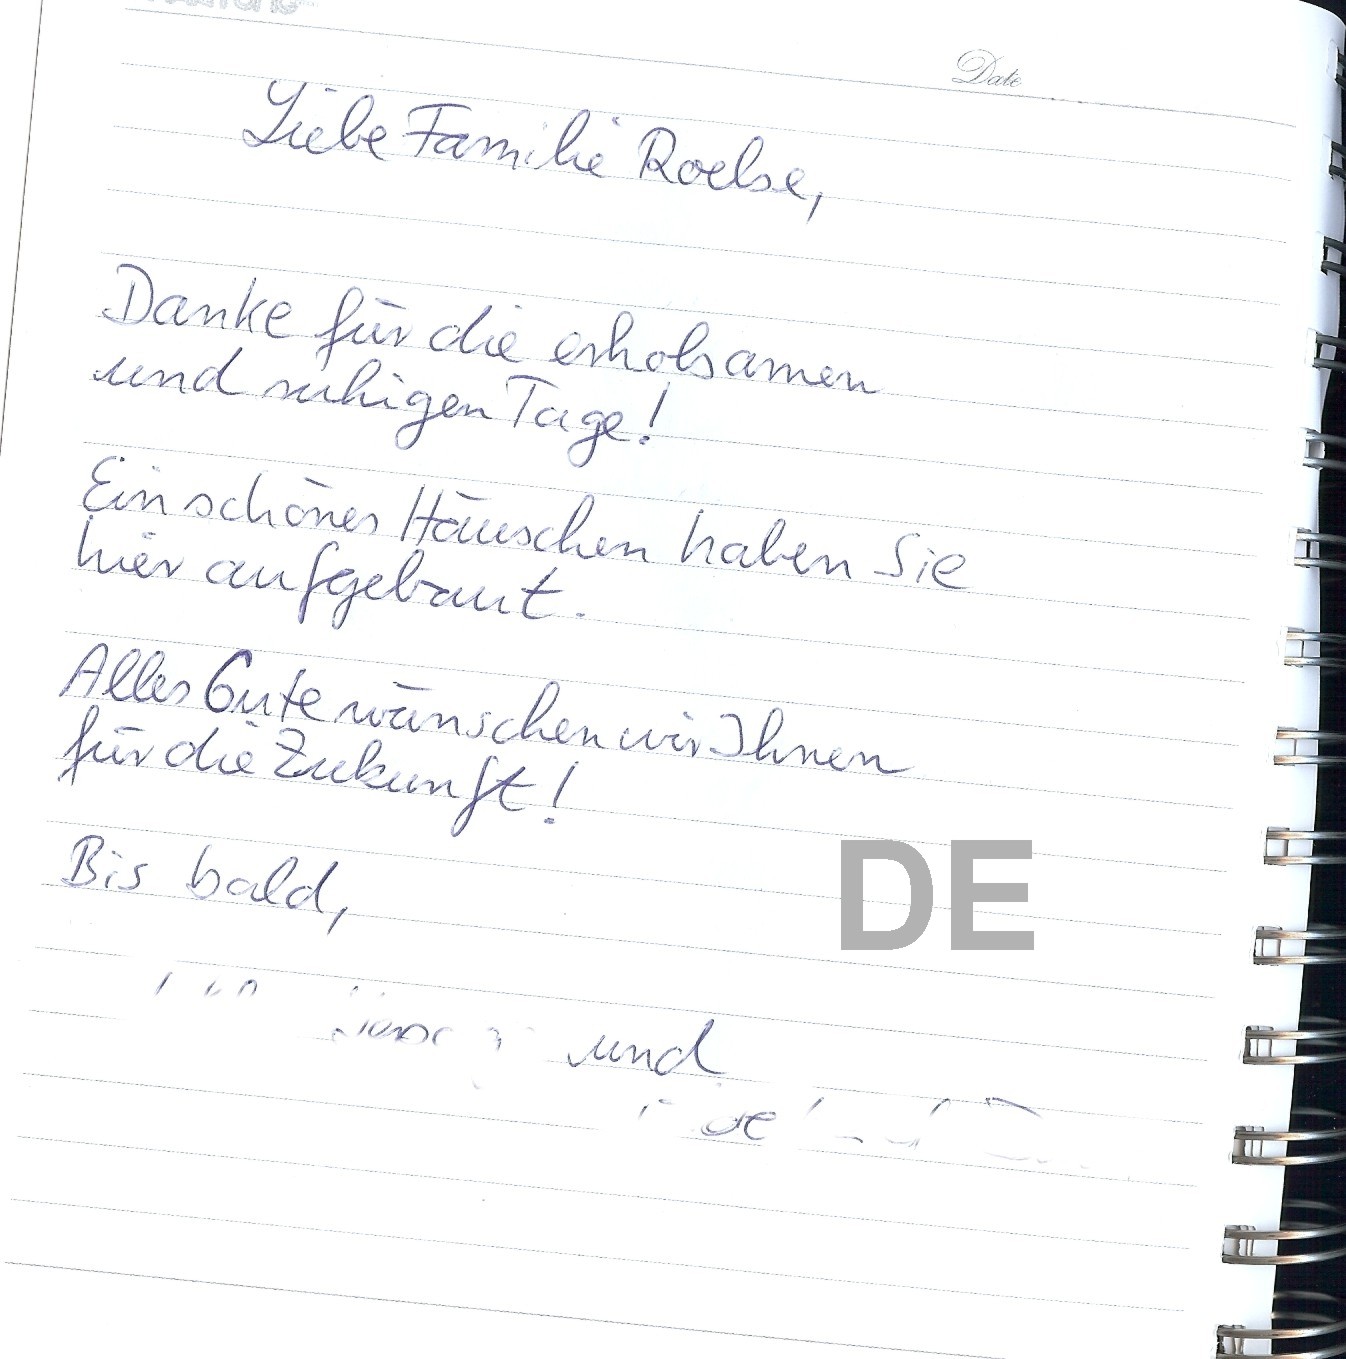 Date
Liebe Familie Roelse,
Danke für die erholsamen
und ruhigen Tage!
Ein schönes Häuschen haben Sie
hier aufgebaut.
Alles Gute wünschen wir Ihnen
für die Zukunft!
Bis bald,
DE
und